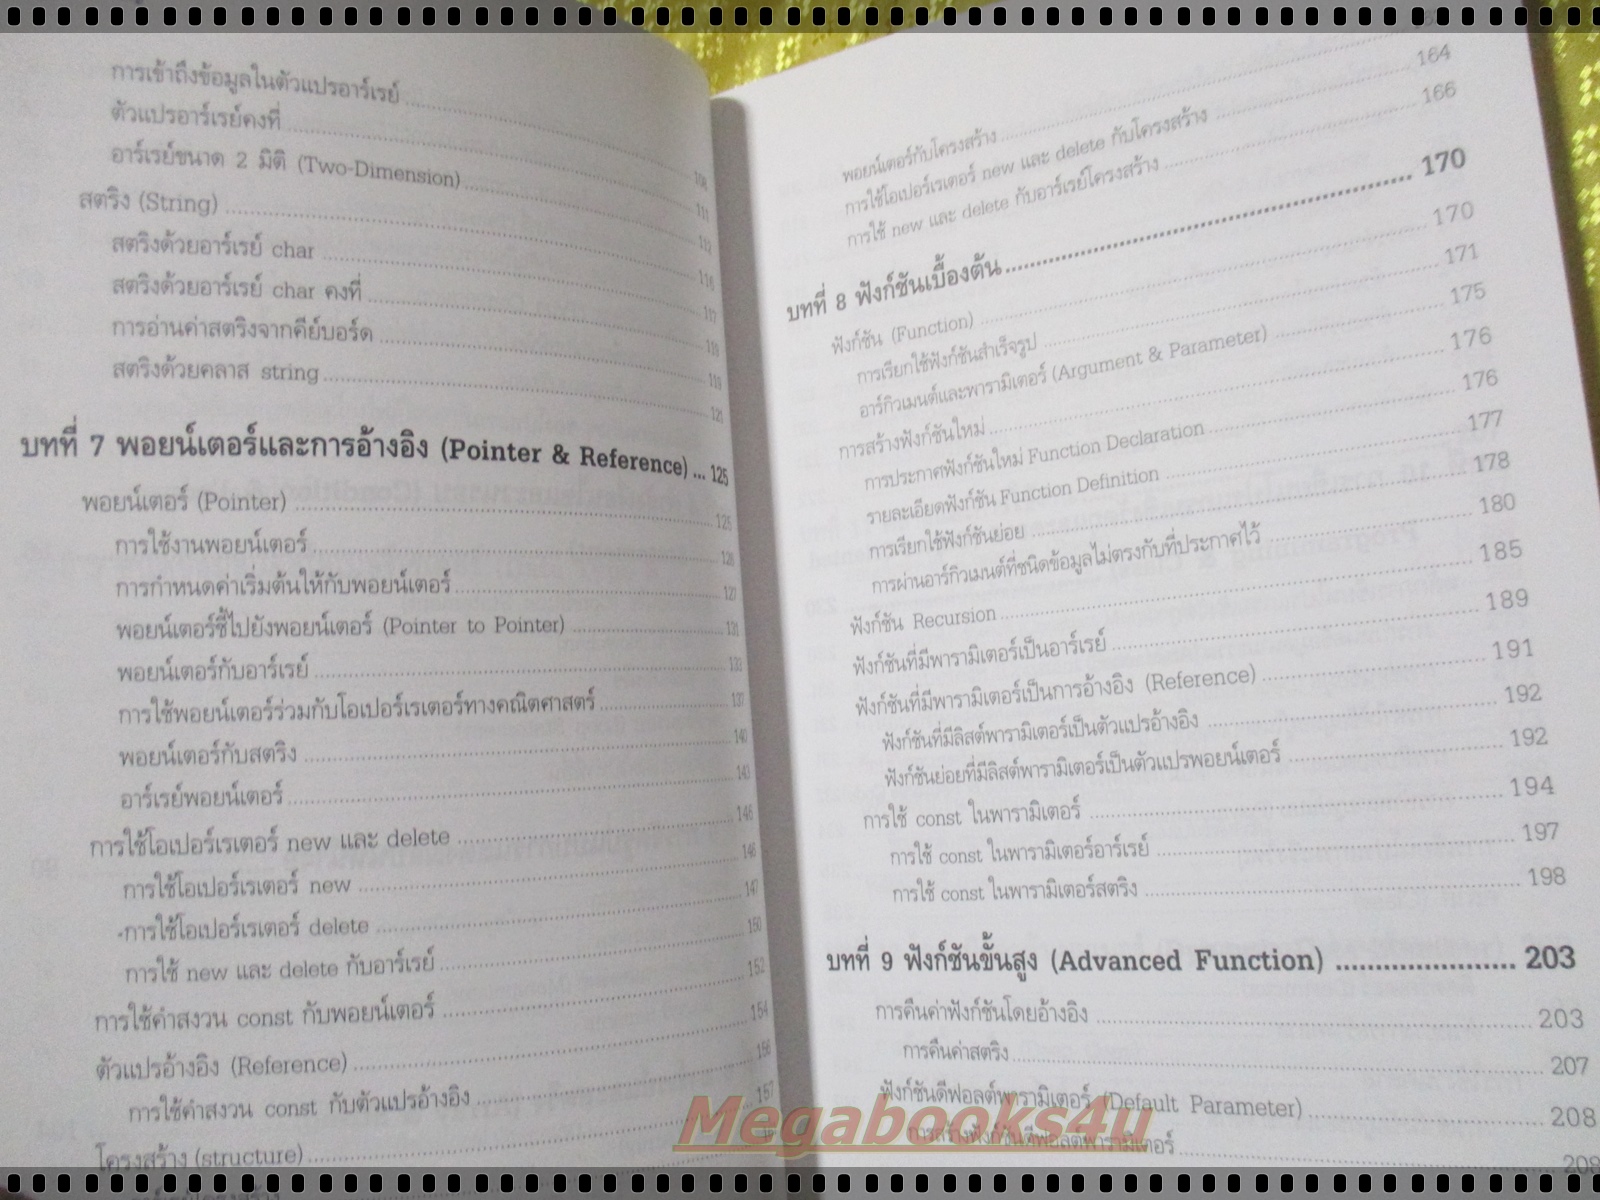 การเข้าถึงข้อมูลในตัวแปรอาร์เรย์
ตัวแปรอาร์เรย์คงที่ 108
อาร์เรย์ขนาด 2 มิติ (Two-Dimension) 111
สตริง (String) 112
สตริงด้วยอาร์เรย์ char 116
สตริงด้วยอาร์เรย์ char คงที่ 117
การอ่านค่าสตริงจากคีย์บอร์ด 119
สตริงด้วยคลาส string 121
บทที่ 7 พอยน์เตอร์และการอ้างอิง (Pointer & Reference) ... 125
พอยน์เตอร์ (Pointer) 125
การใช้งานพอยน์เตอร์ 126
การกำหนดค่าเริ่มต้นให้กับพอยน์เตอร์ 127
พอยน์เตอร์ชี้ไปยังพอยน์เตอร์ (Pointer to Pointer) 131
พอยน์เตอร์กับอาร์เรย์ 133
การใช้พอยน์เตอร์ร่วมกับโอเปอร์เรเตอร์ทางคณิตศาสตร์ 137
พอยน์เตอร์กับสตริง 140
อาร์เรย์พอยน์เตอร์ 143
การใช้โอเปอร์เรเตอร์ new และ delete 146
การใช้โอเปอร์เรเตอร์ new 146
การใช้โอเปอร์เรเตอร์ delete 147
การใช้ new และ delete กับอาร์เรย์ 150
การใช้คำสงวน const กับพอยน์เตอร์ 152
ตัวแปรอ้างอิง (Reference) 154
การใช้คำสงวน const กับตัวแปรอ้างอิง 156
โครงสร้าง (structure) 157
พอยน์เตอร์กับโครงสร้าง
การใช้โอเปอร์เรเตอร์ new และ delete กับโครงสร้าง 164
การใช้ new และ delete กับอาร์เรย์โครงสร้าง 166
บทที่ 8 ฟังก์ชันเบื้องต้น 170
ฟังก์ชัน (Function) 170
การเรียกใช้ฟังก์ชันสำเร็จรูป 171
อาร์กิวเมนต์และพารามิเตอร์ (Argument & Parameter) 175
การสร้างฟังก์ชันใหม่ 176
การประกาศฟังก์ชันใหม่ Function Declaration 176
รายละเอียดฟังก์ชัน Function Definition 177
การเรียกใช้ฟังก์ชันย่อย 178
การผ่านอาร์กิวเมนต์ที่ชนิดข้อมูลไม่ตรงกับที่ประกาศไว้ 180
ฟังก์ชัน Recursion 185
ฟังก์ชันที่มีพารามิเตอร์เป็นอาร์เรย์ 189
ฟังก์ชันที่มีพารามิเตอร์เป็นการอ้างอิง (Reference) 191
ฟังก์ชันที่มีลิสต์พารามิเตอร์เป็นตัวแปรอ้างอิง 192
ฟังก์ชันย่อยที่มีลิสต์พารามิเตอร์เป็นตัวแปรพอยน์เตอร์ 192
การใช้ const ในพารามิเตอร์ 194
การใช้ const ในพารามิเตอร์อาร์เรย์ 197
การใช้ const ในพารามิเตอร์สตริง 198
บทที่ 9 ฟังก์ชันขั้นสูง (Advanced Function) 203
การคืนค่าฟังก์ชันโดยอ้างอิง 203
การคืนค่าสตริง 207
ฟังก์ชันดีฟอลต์พารามิเตอร์ (Default Parameter) 208
การสร้างฟังก์ชันดีฟอลต์พารามิเตอร์ 208
Megabooks4u